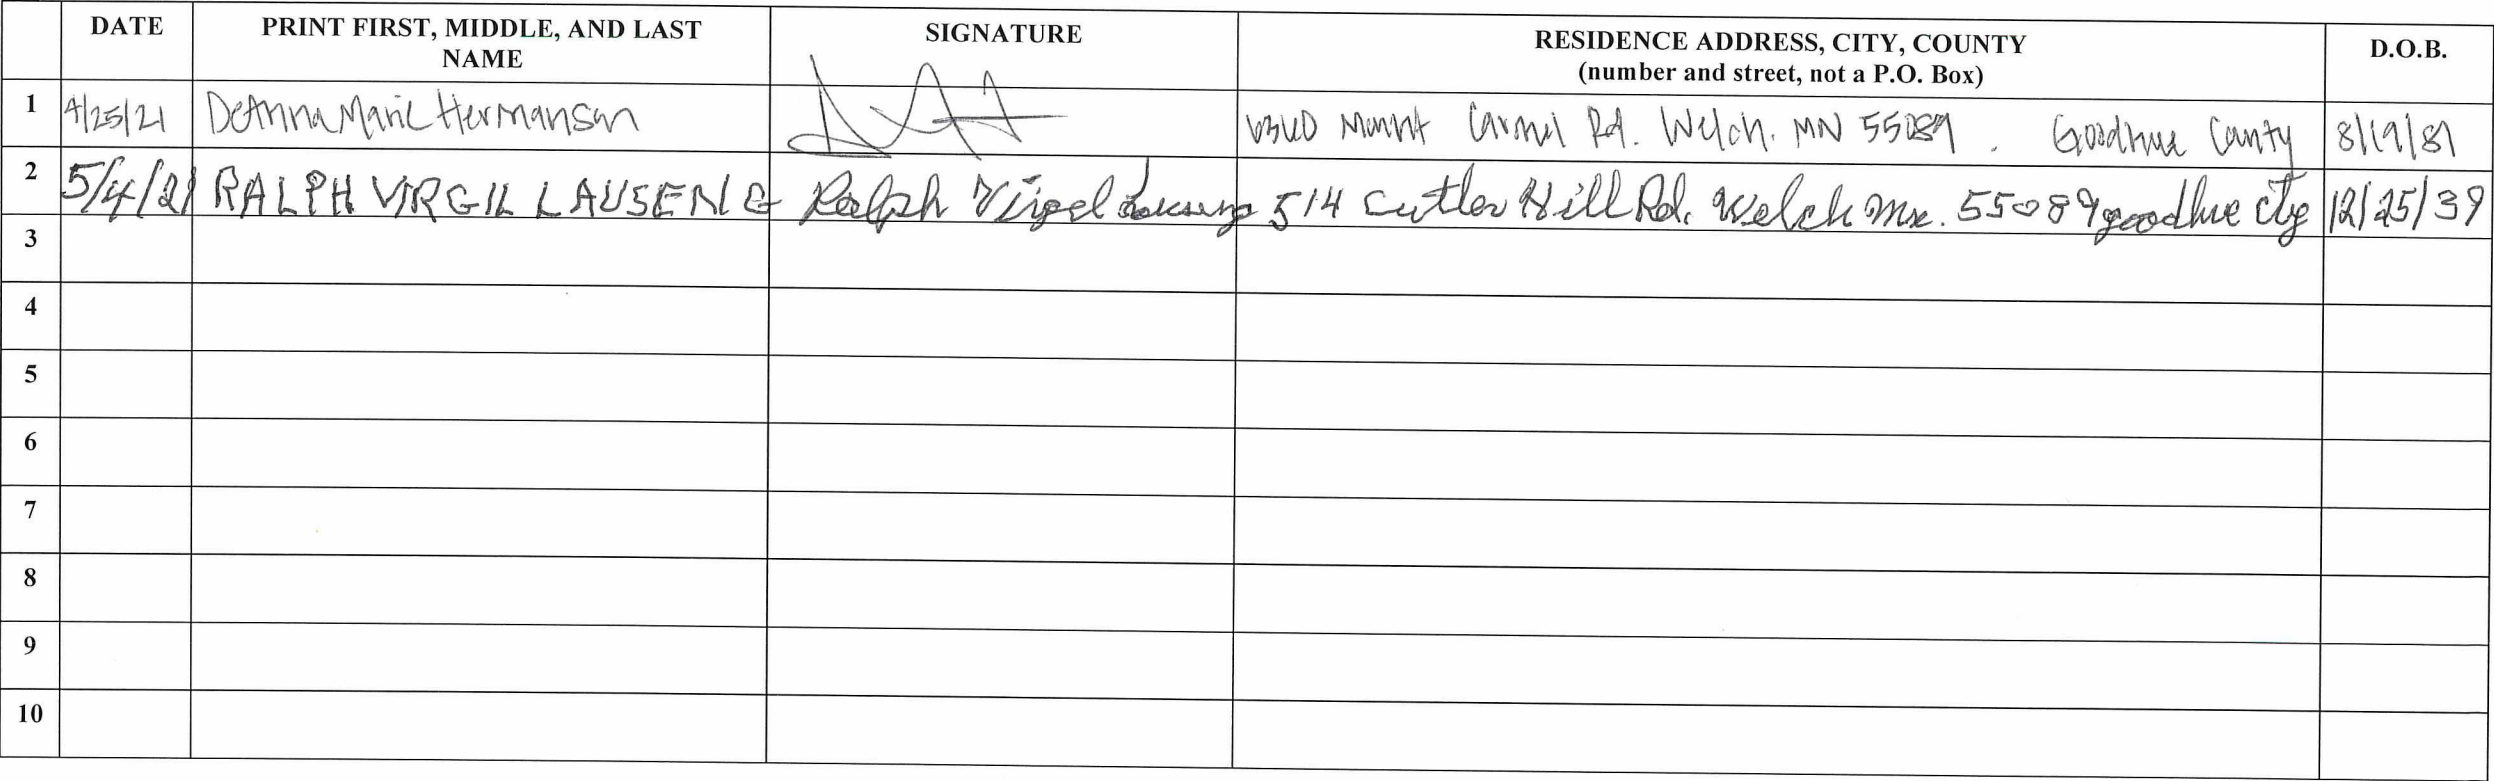 DATE PRINT FIRST, MIDDLE, AND LAST NAME SIGNATURE RESIDENCE ADDRESS, CITY, COUNTY (number and street, not a P.O. Box) D.O.B.
1 4/25/21 DeAnna Marie Hermanson Mount Carmel Rd. Welch. MN 55089. Goodhue County 8/19/81
2 5/4/21 RALPH VIRGIL LAUSENG Ralph Virgel Lauseng 514 Cutler Hill Rd. Welch Mn. 55089 goodhue cty 12/25/39
3
4
5
6
7
8
9
10